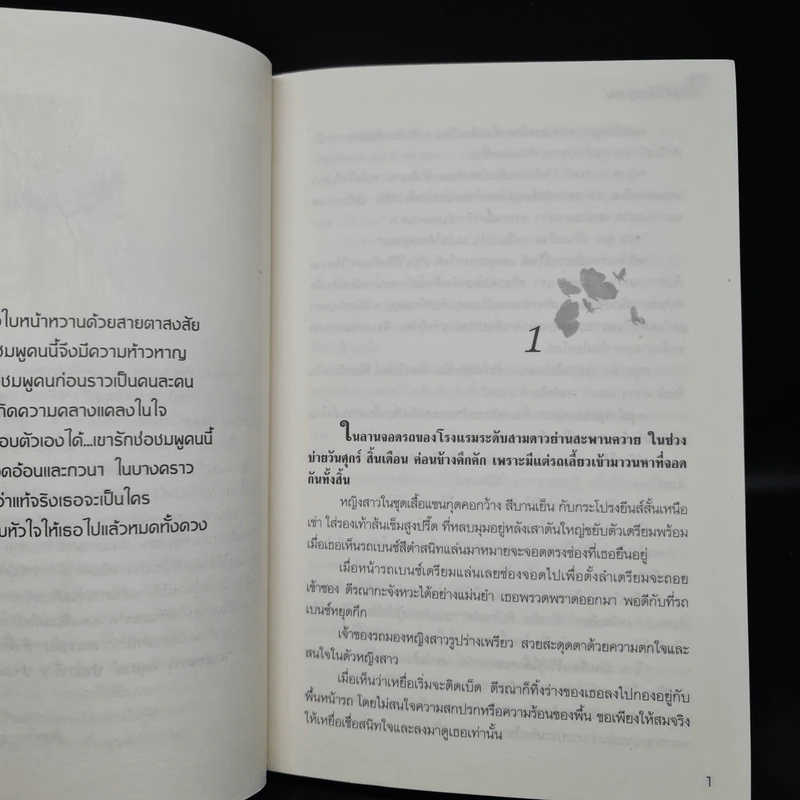 ใบหน้าหวานด้วยสายตาสงสัย
ชมพูคนนี้จึงมีความห้าวหาญ
ชมพูคนก่อนราวเป็นคนละคน
กิดความคลางแคลงในใจ
อบตัวเองได้...เขารักช่อชมพูคนนี้
อดอ้อนและกวนๆ ในบางคราว
ว่าแท้จริงเธอจะเป็นใคร
บหัวใจให้เธอไปแล้วหมดทั้งดวง
1
ในลานจอดรถของโรงแรมระดับสามดาวย่านสะพานควาย ในช่วง
บ่ายวันศุกร์ สิ้นเดือน ค่อนข้างคึกคัก เพราะมีแต่รถเลี้ยวเข้ามาวนหาที่จอด
กันทั้งสิ้น
หญิงสาวในชุดเสื้อแขนกุดคอกว้าง สีบานเย็น กับกระโปรงยีนส์สั้นเหนือ
เข่า ใส่รองเท้าส้นเข็มสูงปรี๊ด ที่หลบมุมอยู่หลังเสาต้นใหญ่ขยับตัวเตรียมพร้อม
เมื่อเธอเห็นรถเบนซ์สีดำสนิทแล่นมาหมายจะจอดตรงช่องที่เธอยืนอยู่
เมื่อหน้ารถเบนซ์เตรียมแล่นเลยช่องจอดไปเพื่อตั้งลำเตรียมจะถอย
เข้าซอง ตีรณากะจังหวะได้อย่างแม่นยำ เธอพรวดพราดออกมา พอดีกับที่รถ
เบนซ์หยุดกึก
เจ้าของรถมองหญิงสาวรูปร่างเพรียว สวยสะดุดตาด้วยความตกใจและ
สนใจในตัวหญิงสาว
เมื่อเห็นว่าเหยื่อเริ่มจะติดเบ็ด ตีรณาก็ทิ้งร่างของเธอลงไปกองอยู่กับ
พื้นหน้ารถ โดยไม่สนใจความสกปรกหรือความร้อนของพื้น ขอเพียงให้สมจริง
ให้เหยื่อเชื่อสนิทใจและลงมาดูเธอเท่านั้น
1